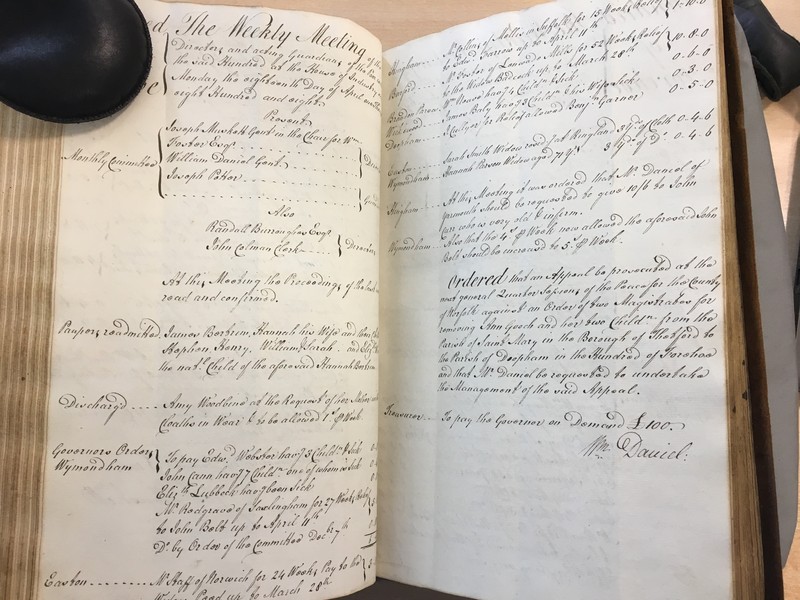 The Weekly Meeting of the
Directors and acting Guardians of the Poor
the said Hundred at the House of Industry
Monday the eighteenth Day of April one Thou
eight Hundred and eight
Present
Joseph Muskett Gent in the Chair for Wm
Foster Esqr
Monthly Committee William Daniel Gent
Joseph Parker
Also
Randall Burroughes Esqr
John Colman Clerk Directors
At this Meeting the Proceedings of the last
read and confirmed.
Paupers readmitted James Bortrim, Hannah his Wife and
Stephen, Henry, William & Sarah and Eliz.
the nat.l Child of the aforesaid Hannah Bortrim
Discharg'd Amy Woodbine at the Request of her
Cloaths in Wear & to be allowed 1s. ⅌ Week
Governors Orders To pay Edw.d Webster hav.g 3 Child.n Sick
Wymondham John Cann hav.g 7 Child.n one of whom is sick
Eliz.th Lubbock hav.g been sick
Mr. Redgrave of Saxlingham for 27 Weeks Relief
to John Bolt up to April 11th
Do. by Order of the Committee Dec.r 7th
Easton Mr. Haff of Norwich for 24 Weeks Pay to
up to March 28th
Hingham Mr. Collins of Melles in Suffolk for 15 Weeks Relief
to Edw.d Farrow up to April 11th 1-10-0
Barford Mr. Foster of Limond Mills for 52 Weeks Relief
to the Widow Burdock up to March 28th 10-8-0
hav.g 4 Child.n sick 0-6-0
James Baly hav.g 3 Child.n & his Wife Sick 0-3-0
Deopham for Relief allowed Benj.n Garner 0-5-0
Easton Sarah Smith Widow resid.g at Ringland 3 yds. of Cloth 0-4-6
Wymondham Hannah Person Widow aged 71 yrs. 3 yds. of Do. 0-4-6
Hingham At this Meeting it was ordered that Mr. Daniel of
Yaxham should be requested to give 10/6 to John
Carr who is very old & infirm.
Wymondham Also that the 4s. ⅌ Week now allowed the aforesaid John
Bolt should be increased to 5s. ⅌ Week.
Ordered that an Appeal be prosecuted at the
next general Quarter Sessions of the Peace for the County
of Norfolk against an Order of two Magistrates for
removing Ann Gooch and her two Child.n from the
Parish of Saint Mary in the Borough of Thetford to
the Parish of Deopham in the Hundred of Forehoe
and that Mr. Daniel be requested to undertake
the Management of the said Appeal.
Treasurer To pay the Governor on Demand £100.
Wm. Daniel.